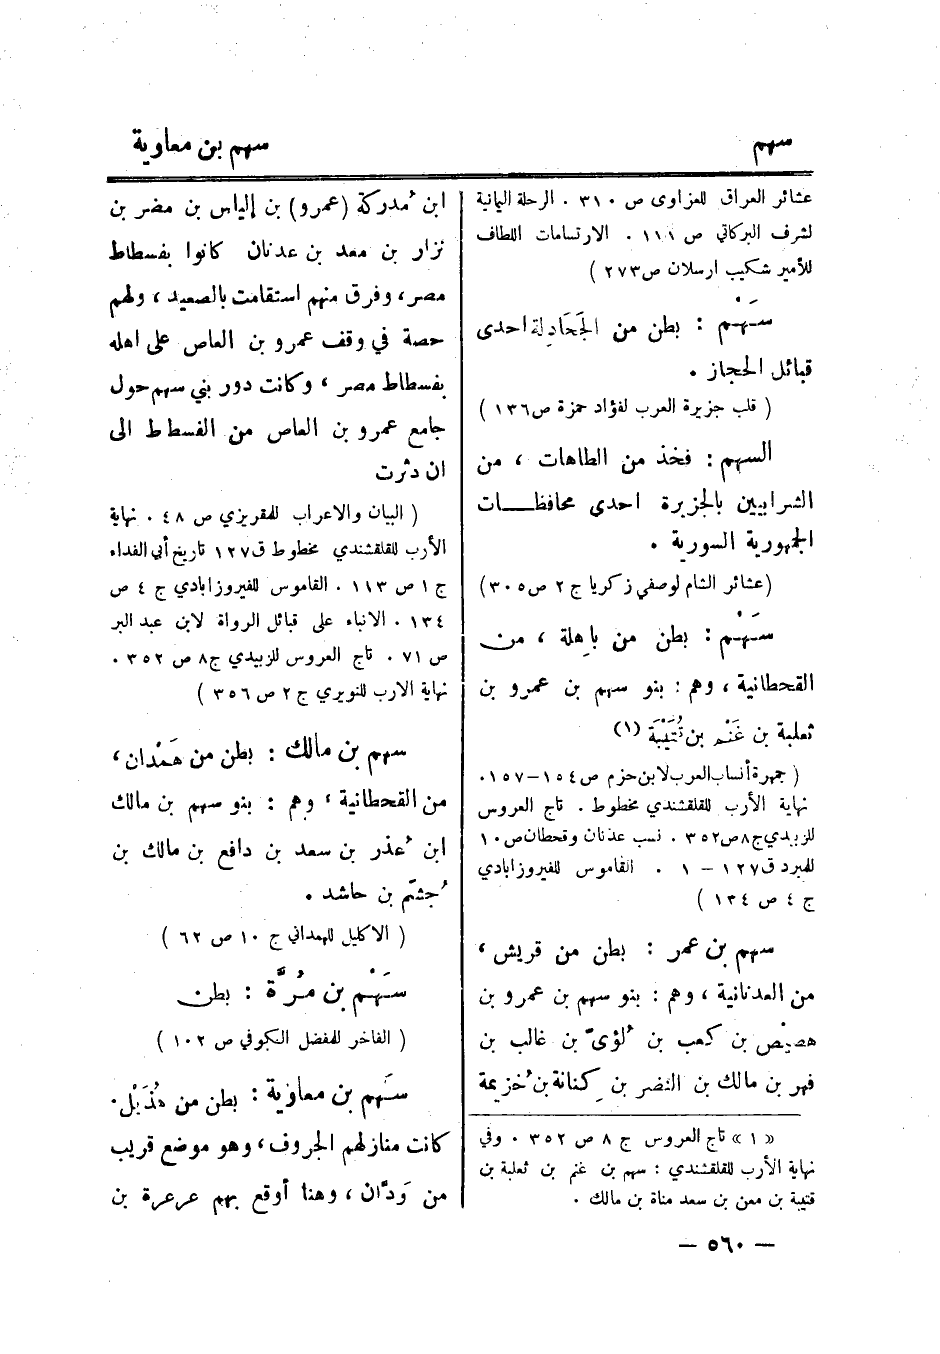 سهم
سهم بن معاوية
عشائر العراق للعزاوى ص ٣١٠ . الرحلة اليمانية
لشرف البركاتي ص ١١٦ . الارتسامات اللطاف
للأمير شكيب ارسلان ص ٢٧٣ )
سَهْم : بطن من الجَحَادِلة احدى
قبائل الحجاز .
( قلب جزيرة العرب لفؤاد حمزة ص ١٣٦ )
السهم : فخذ من الطاهات ، من
الشرابيين بالجزيرة احدى محافظات
الجمهورية السورية .
(عشائر الشام لوصفي زكريا ج ٢ ص ٣٠٥)
سَهْم : بطن من باهِلة ، من
القحطانية ، وهم : بنو سهم بن عمرو بن
ثعلبة بن غَنْم بن قُتَيْبَة (١)
( جمهرة أنساب العرب لابن حزم ص ١٥٤–١٥٧.
نهاية الأرب للقلقشندي مخطوط . تاج العروس
للزبيدي ج ٨ ص ٣٥٢ . نسب عدنان وقحطان ص ١٠
للمبرد ق ١٢٧ – ١ . القاموس للفيروزابادي
ج ٤ ص ١٣٤ )
سهم بن عمر : بطن من قريش ،
من العدنانية ، وهم : بنو سهم بن عمرو بن
هصيْص بن كعب بن لُؤىّ بن غالب بن
فهر بن مالك بن النضر بن كِنانة بن خُزيمة
«١» تاج العروس ج ٨ ص ٣٥٢ . وفي
نهاية الأرب للقلقشندي : سهم بن غنم بن ثعلبة بن
قتيبة بن معن بن سعد مناة بن مالك .
ابن مُدركة (عمرو) بن إلياس بن مضر بن
نزار بن معد بن عدنان كانوا بفسطاط
مصر، وفرق منهم استقامت بالصعيد ، ولهم
حصة في وقف عمرو بن العاص على اهله
بفسطاط مصر ، وكانت دور بني سهم حول
جامع عمرو بن العاص من الفسطاط الى
ان دثرت
( البيان والاعراب للمقريزي ص ٤٨ . نهاية
الأرب للقلقشندي مخطوط ق ١٢٧ تاريخ أبي الفداء
ج ١ ص ١١٣ . القاموس للفيروزابادي ج ٤ ص
١٣٤ . الانباء على قبائل الرواة لابن عبد البر
ص ٧١ . تاج العروس للزبيدي ج ٨ ص ٣٥٢ .
نهاية الارب للنويري ج ٢ ص ٣٥٦ )
سهم بن مالك : بطن من هَمْدان ،
من القحطانية ، وهم : بنو سهم بن مالك
ابن عُذر بن سعد بن دافع بن مالك بن
جُشَم بن حاشد .
( الاكليل للهمداني ج ١٠ ص ٦٢ )
سَهْم بن مُرَّة : بطن
( الفاخر للمفضل الكوفي ص ١٠٢ )
سَهم بن معاوية : بطن من هُذَيْل.
كانت منازلهم الجروف ، وهو موضع قريب
من وَدَّان ، وهنا أوقع بهم عرعرة بن
— ٥٦٠ —